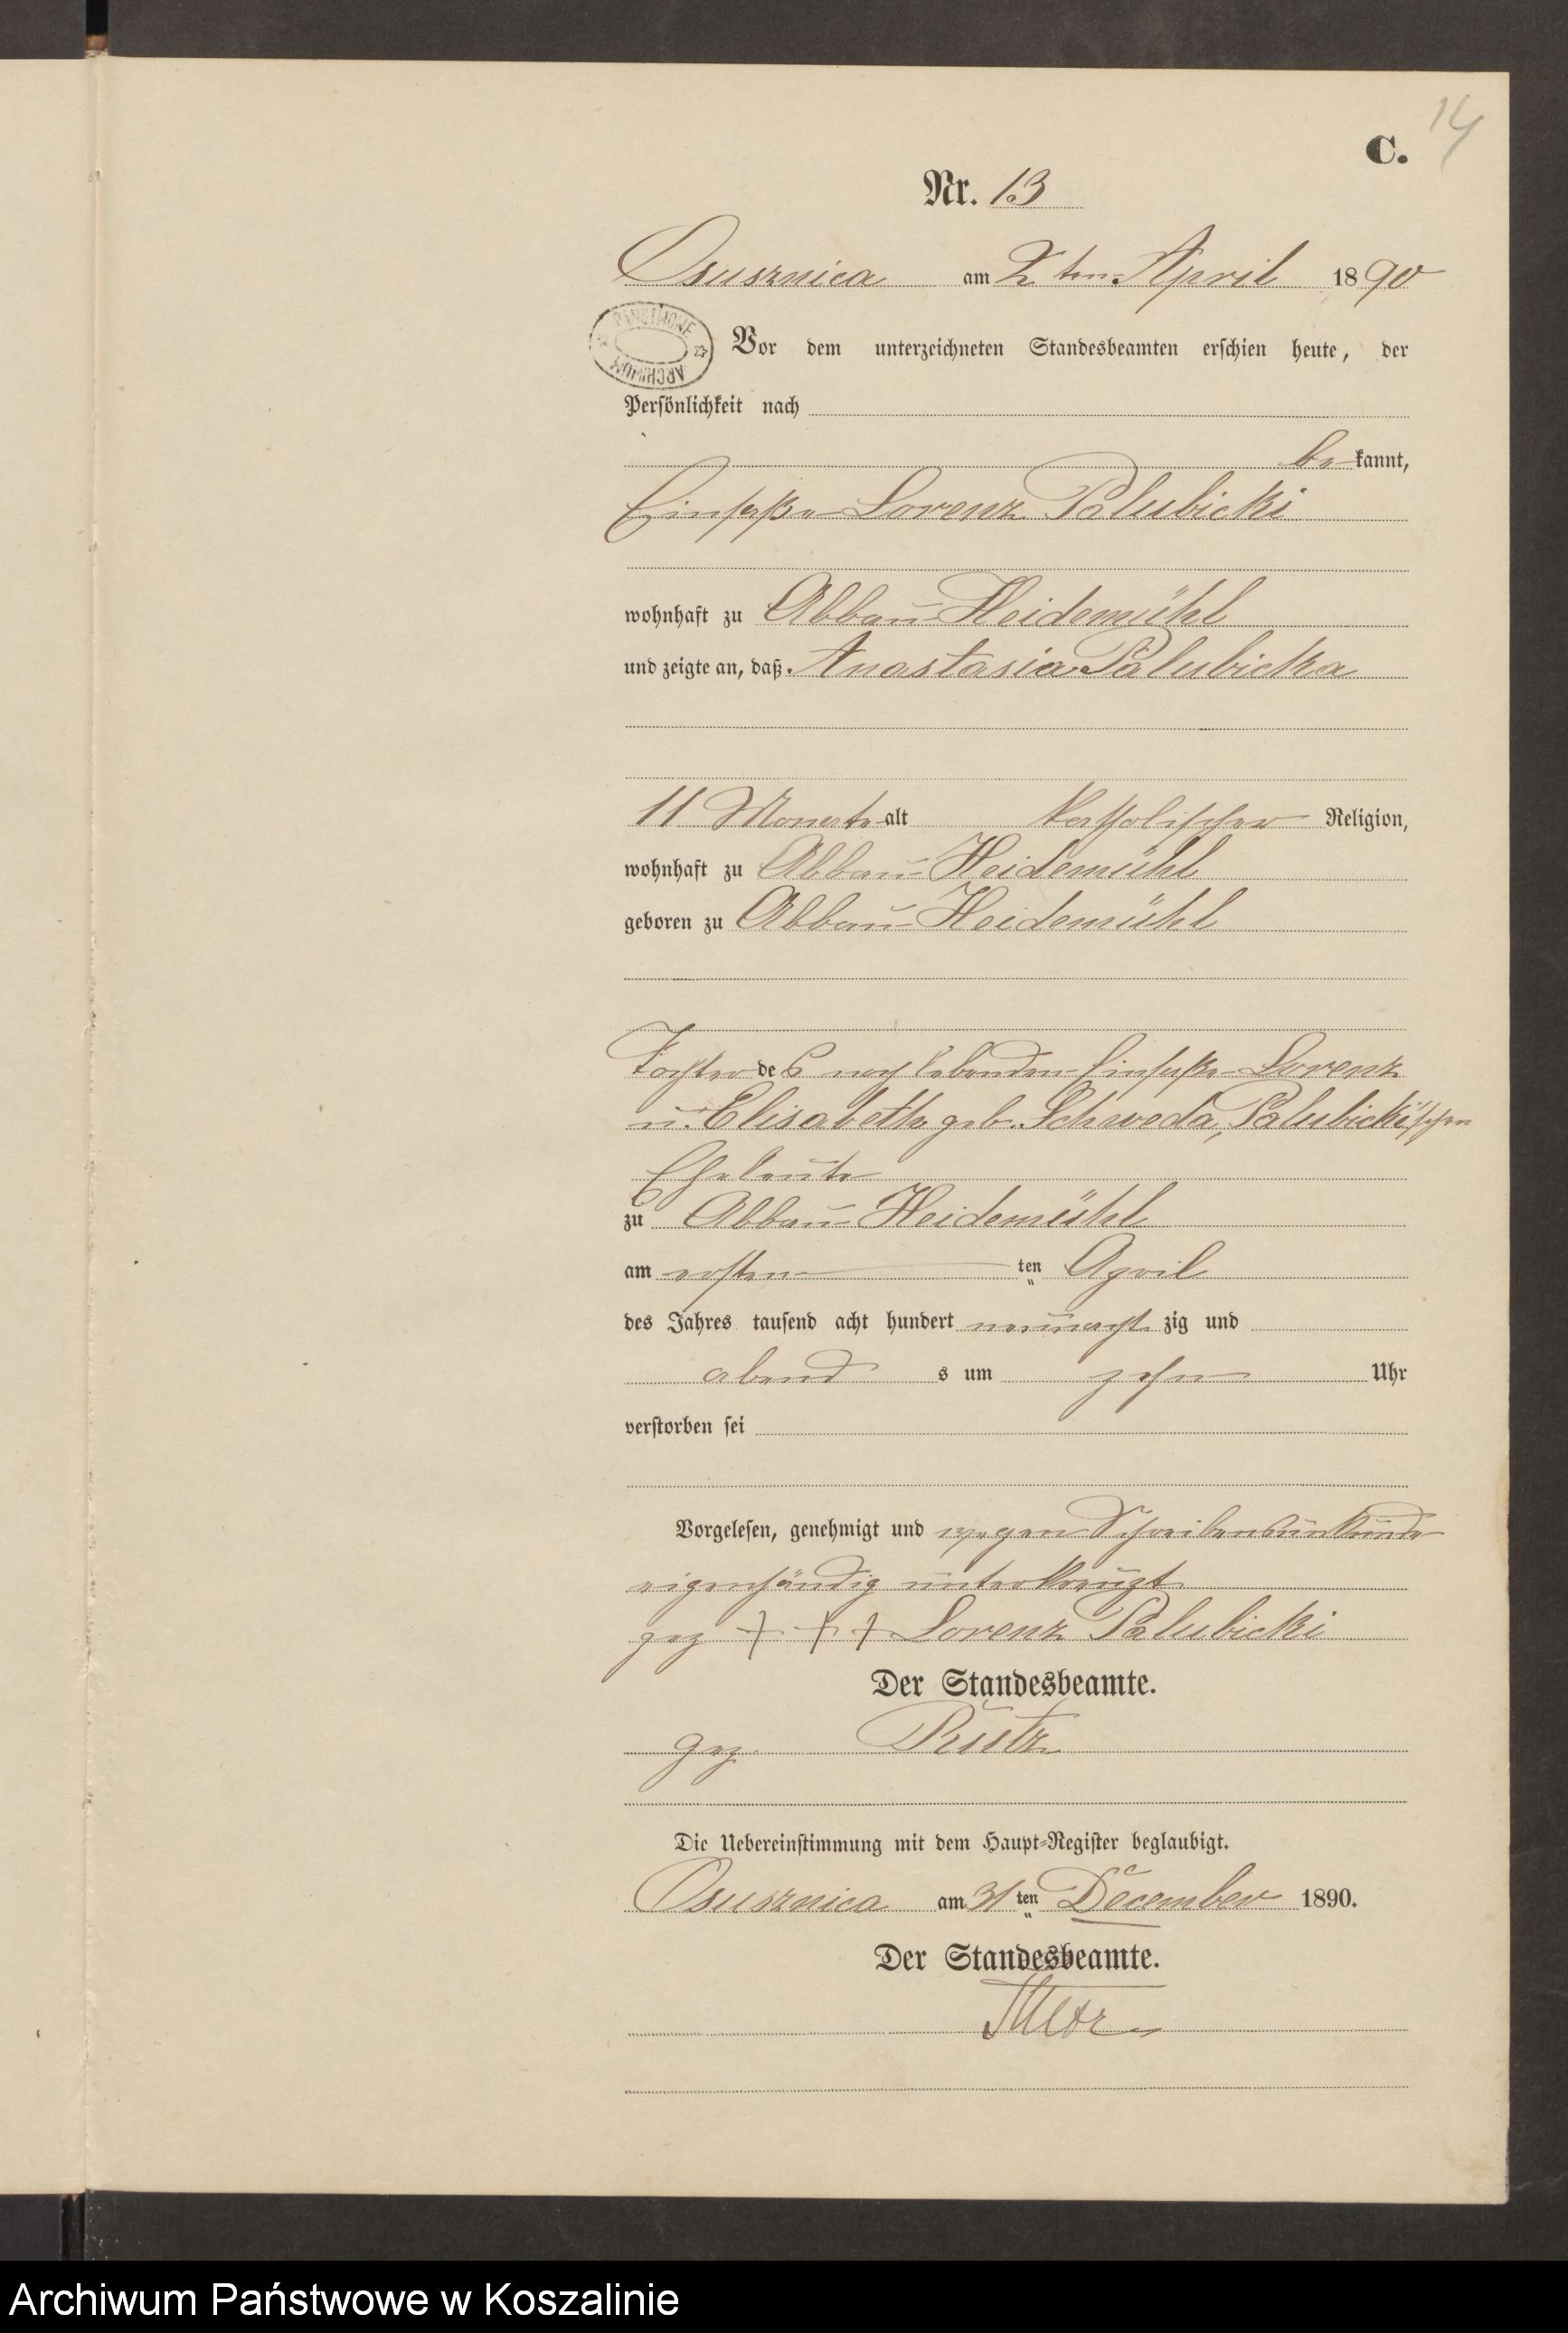 14
C.
Nr. 13
Osusznica am 2ten April 1890
PAŃSTWOWE ARCHIWUM
Vor dem unterzeichneten Standesbeamten erschien heute, der
Persönlichkeit nach
bekannt,
Einsaße Lorenz Palubicki
wohnhaft zu Abbau Heidemühl
und zeigte an, daß Anastasia Palubicka
11 Monate alt katholischer Religion,
wohnhaft zu Abbau Heidemühl
geboren zu Abbau Heidemühl
Tochter des noch lebenden Einsaße Lorenz
u. Elisabeth geb. Schweda, Palubicki'schen
Eheleute
zu Abbau Heidemühl
am ersten ten April
des Jahres tausend acht hundert neunzig und
abend s um zehn Uhr
verstorben sei
Vorgelesen, genehmigt und wegen Schreibensunkunde
eigenhändig unterkreuzt
gez + + + Lorenz Palubicki
Der Standesbeamte.
gez. Rutz
Die Uebereinstimmung mit dem Haupt-Register beglaubigt.
Osusznica am 31ten December 1890.
Der Standesbeamte.
Archiwum Państwowe w Koszalinie